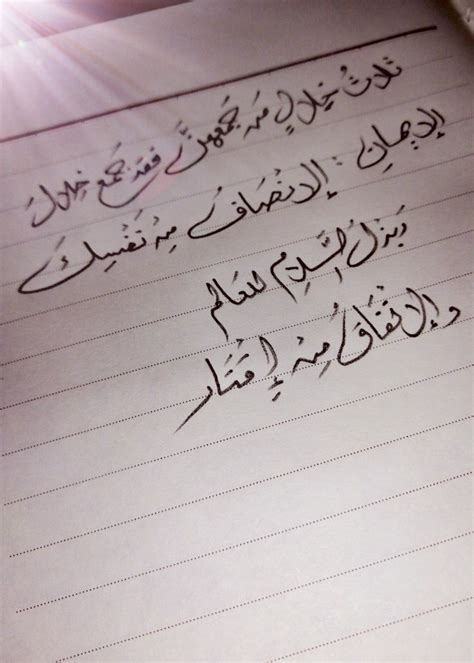 ثلاثُ خِلالٍ مَن جَمَعَهنَّ فقد جَمَع خِلالَ
الإيمانِ : الإنْصَافُ مِنْ نَفْسِكَ
وبَذلُ السَّلامِ للعَالم
والإنْفَاقُ مِنْ إِقْتَار